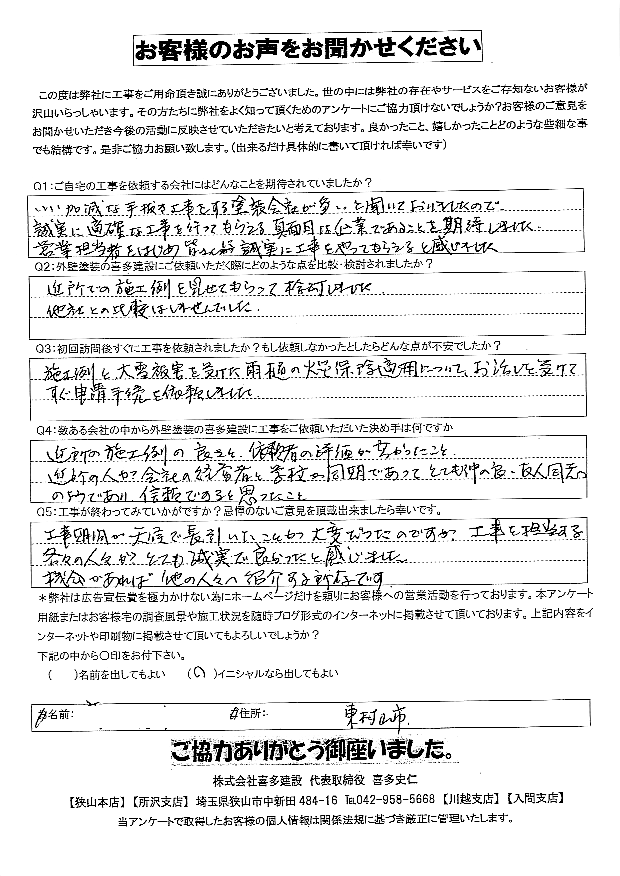 お客様のお声をお聞かせください
この度は弊社に工事をご用命頂き誠にありがとうございました。世の中には弊社の存在やサービスをご存知ないお客様が
沢山いらっしゃいます。その方たちに弊社をよく知って頂くためのアンケートにご協力頂けないでしょうか?お客様のご意見を
お聞かせいただき今後の活動に反映させていただきたいと考えております。良かったこと、嬉しかったことどのような些細な事
でも結構です。是非ご協力お願い致します。(出来るだけ具体的に書いて頂ければ幸いです)
Q1:ご自宅の工事を依頼する会社にはどんなことを期待されていましたか?
いい加減な手抜き工事をする塗装会社が多いと聞いておりましたので
誠実に適確な工事を行ってもらえる真面目な企業であることを期待しました
営業担当者をはじめ 誠実に工事をやってもらえると感じました
Q2:外壁塗装の喜多建設にご依頼いただく際にどのような点を比較・検討されましたか?
近所での施工例を見せてもらって検討しました
他社との比較はしませんでした
Q3:初回訪問後すぐに工事を依頼されましたか?もし依頼しなかったとしたらどんな点が不安でしたか?
施工例と大雪被害を受けた雨樋の火災保険適用について、お話しを受けて
すぐ申請手続を依頼しました
Q4:数ある会社の中から外壁塗装の喜多建設に工事をご依頼いただいた決め手は何ですか
近所の施工例の良さと、依頼者の評価が高かったこと
近所の人が会社の経営者と学校が同期であって とても仲の良い友人同志
のようであり、信頼できると思ったこと
Q5:工事が終わってみていかがですか?忌憚のないご意見を頂戴出来ましたら幸いです。
工事期間が天候で長引いたことが大変だったのですが 工事を担当する
各々の人々がとても誠実で良かったと感じました
機会があれば他の人々へ紹介する所存です
*弊社は広告宣伝費を極力かけない為にホームページだけを頼りにお客様への営業活動を行っております。本アンケート
用紙またはお客様宅の調査風景や施工状況を随時ブログ形式のインターネットに掲載させて頂いております。上記内容をイ
ンターネットや印刷物に掲載させて頂いてもよろしいでしょうか?
下記の中から〇印をお付下さい。
( )名前を出してもよい (〇)イニシャルなら出してもよい
お名前: お住所: 東村山市
ご協力ありがとう御座いました。
株式会社喜多建設 代表取締役 喜多史仁
【狭山本店】【所沢支店】 埼玉県狭山市中新田484-16 ℡042-958-5668 【川越支店】【入間支店】
当アンケートで取得したお客様の個人情報は関係法規に基づき厳正に管理いたします。